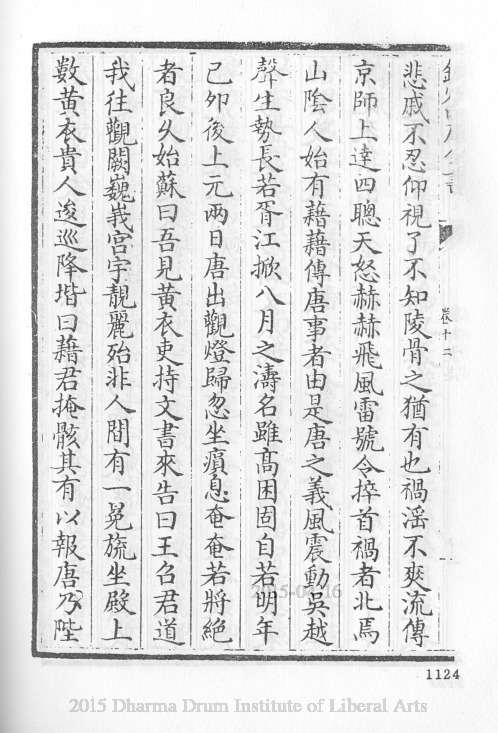 卷十二
悲戚不忍仰視了不知陵骨之猶有也禍淫不爽流傳
京師上達四聰天怒赫赫飛風雷號令捽首禍者北焉
山陰人始有藉藉傳唐事者由是唐之義風震動吳越
聲生勢長若胥江掀八月之濤名雖高困固自若明年
己卯後上元两日唐出觀燈歸忽坐殞息奄奄若將絶
者良久始蘇曰吾見黃衣吏持文書來告曰王召君道
我往觀闕巍峩宮宇靚麗殆非人間有一冕旒坐殿上
數黃衣貴人逡巡降堦曰藉君掩骸其有以報唐乃陛
1124
2015 Dharma Drum Institute of Liberal Arts